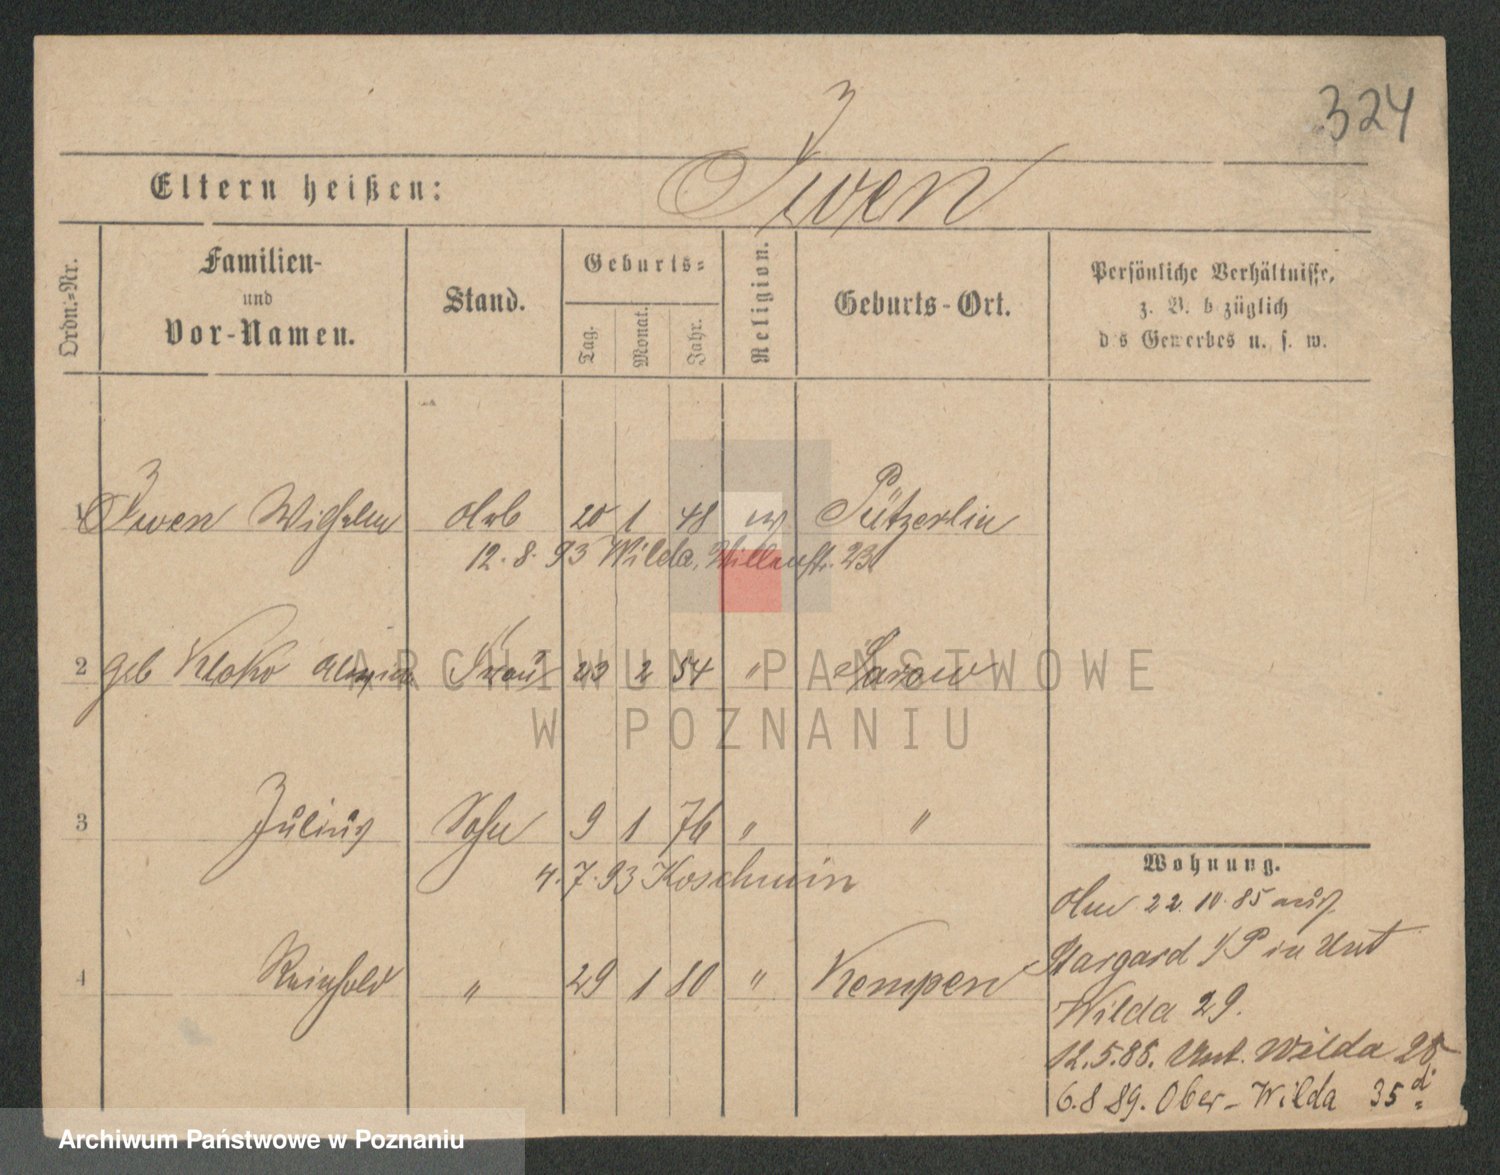 324
Eltern heißen:
Iwen
Ordn.-Nr.
Familien-
und
Vor-Namen.
Stand.
Geburts-
Tag.
Monat.
Jahr.
Religion.
Geburts-Ort.
Persönliche Verhältnisse,
z. B. b züglich
d s Gewerbes u. s. w.
1 Iwen Wilhelm Arb 20 1 48 ev Pützerlin
12. 8. 93 Wilda, Villenstr. 23
2 geb Kloko Frau 23 2 54 " Sarow
3 Julius Sohn 9 1 76 " "
4. 7. 93 Koschmin
4 Reinhold " 29 1 80 " Kempen
Wohnung.
22. 10. 85 aus
Stargard i/P in Unt
Wilda 29.
12. 5. 88. Unt. Wilda 28
6. 8 89. Ober-Wilda 35 d.
ARCHIWUM PAŃSTWOWE
W POZNANIU
Archiwum Państwowe w Poznaniu